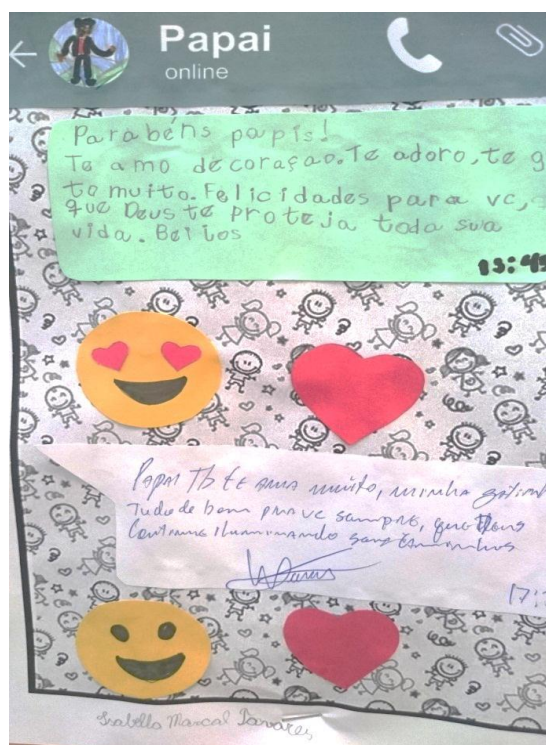 Papai
online
Parabéns papis!
Te amo de coração. Te adoro, te g
to muito. Felicidades para vc,
que Deus te proteja toda sua
vida. Beijos
Papai Tb te ama muito, minha
Tudo de bom pra vc sempre, que Deus
Continue iluminando seus caminhos
17:
Isabella Marcal Tavares